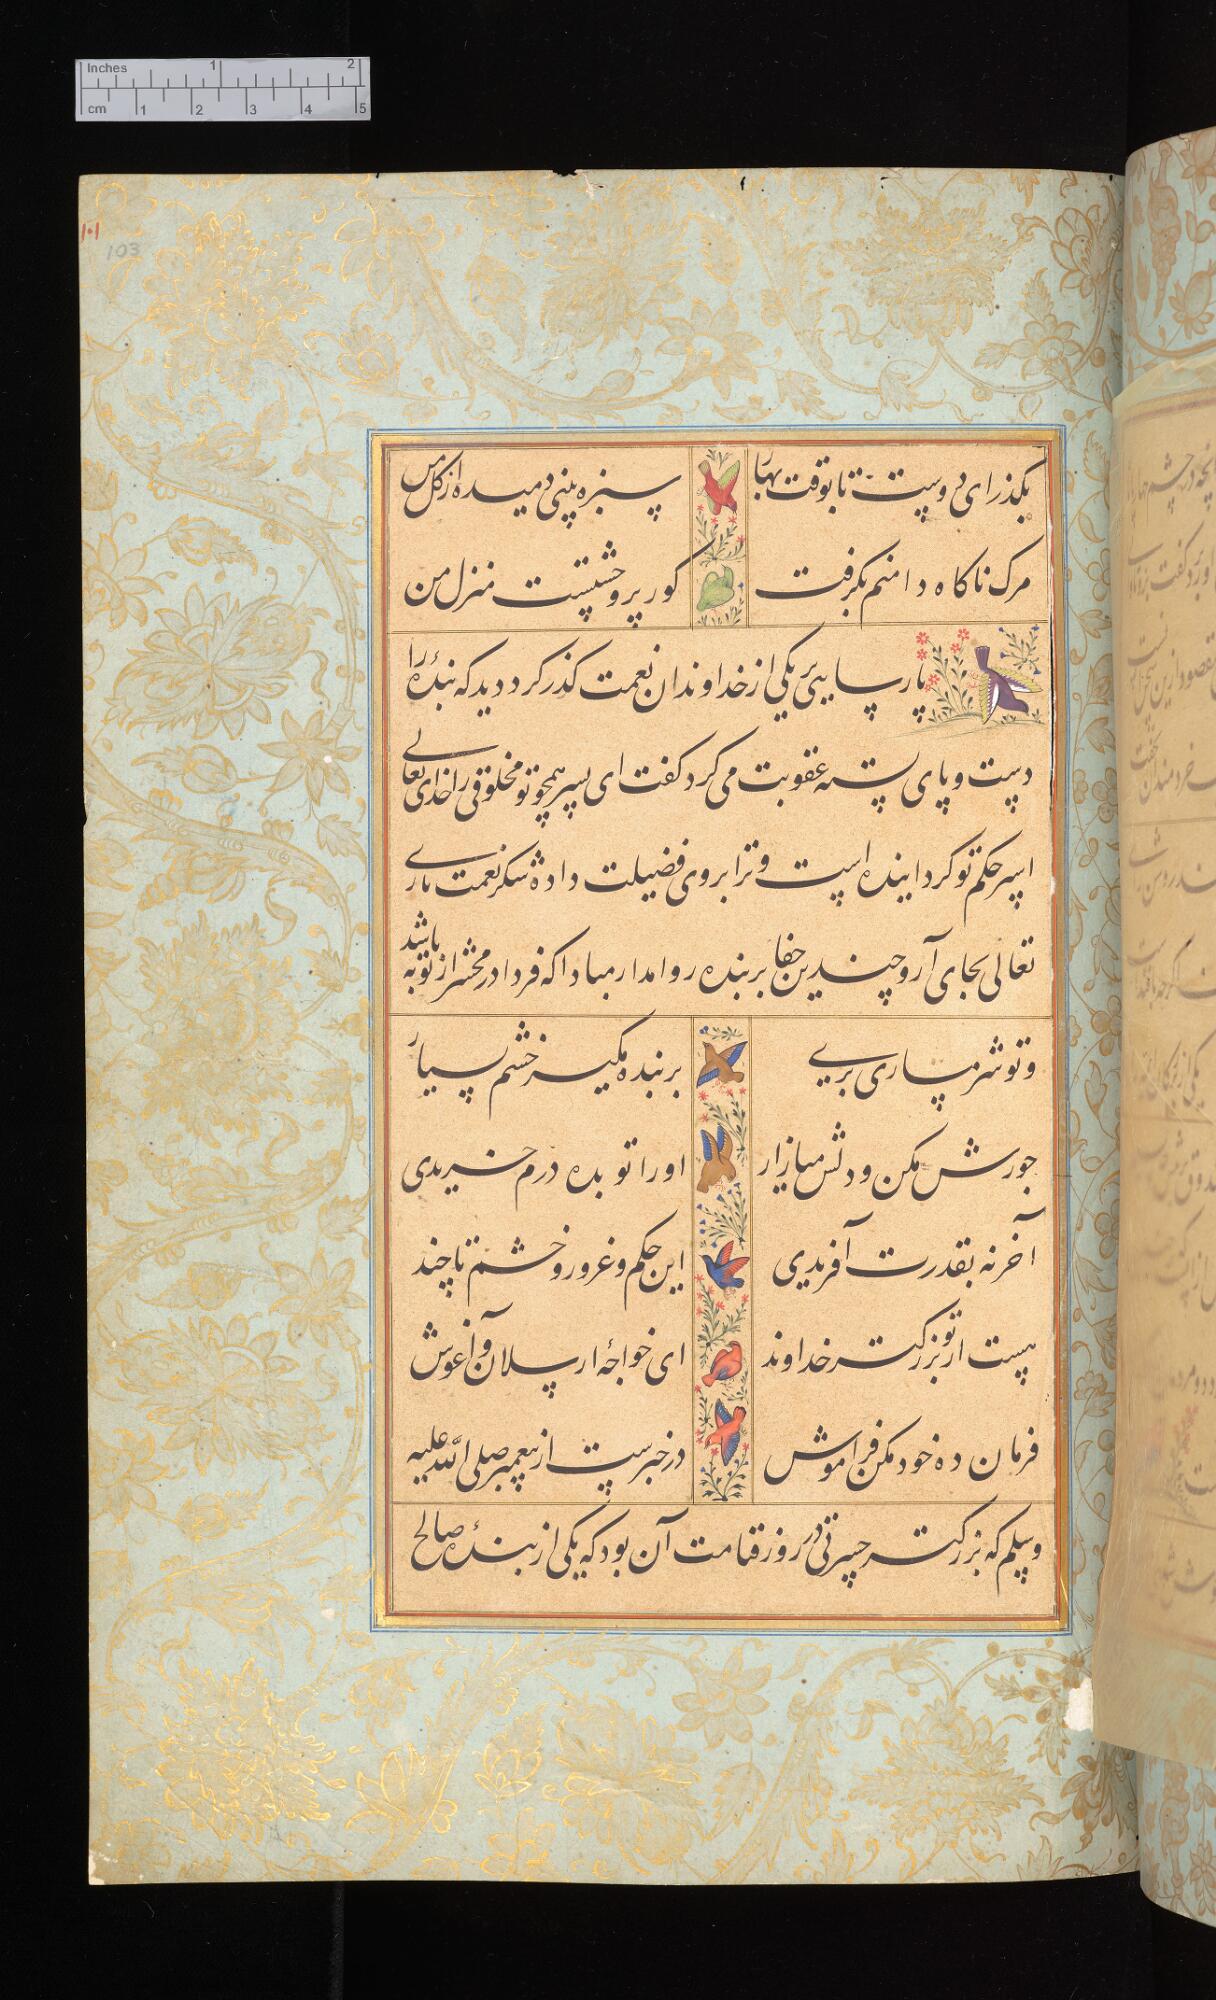 Inches 1 2
cm 1 2 3 4 5
۱۰۱
103
بگذر ای دوست تا بوقت بهار سبزه بینی دمیده از گل من
مرک ناکاه دامنم بگرفت کور پر وحشتست منزل من
پارسایی بر یکی از خداوندان نعمت کذر کرد دید که بندهٔ را
دست و پای بسته عقوبت می کرد کفت ای پسر همچو تو مخلوقی را خدای تعالی
اسیر حکم تو کردانیده است و ترا بر وی فضیلت داده شکر نعمت باری
تعالی بجای آر و چندین جفا بر بنده روا مدار مبادا که فردا در محشر از تو به باشد
و تو شرمساری بری بر بنده مکیر خشم بسیار
جورش مکن و دلش میازار او را تو بده درم خریدی
آخر نه بقدرت آفریدی این حکم و غرور و خشم تا چند
هست از تو بزرکتر خداوند ای خواجهٔ ارسلان و آغوش
فرمان ده خود مکن فراموش در خبرست از پیغمبر صلی الله علیه
وسلم که بزرکتر حسرتی در روز قیامت آن بود که یکی از بندهٔ صالح